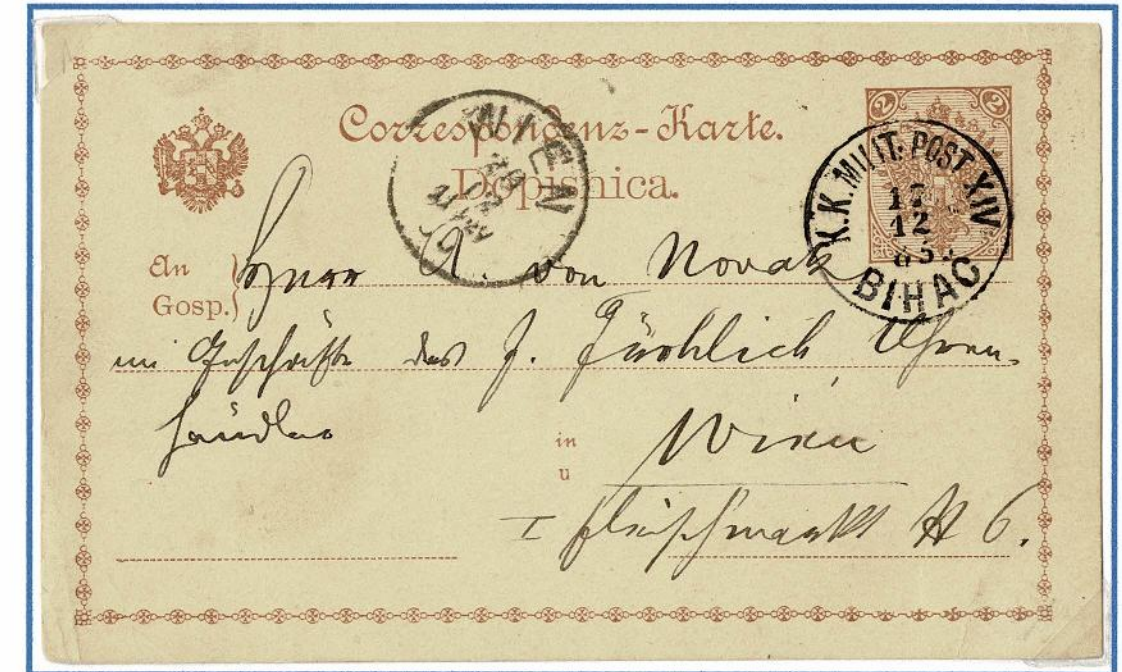 Correspondenz-Karte.
Dopisnica.
2 2
WIEN
K.K. MILIT. POST XIV
12
BIHAC
An
Gosp.
Herrn A. von Novak
im Geschäfte des J. Fröhlich Uhren-
händler
in
u
Wien
I Fleischmarkt N 6.